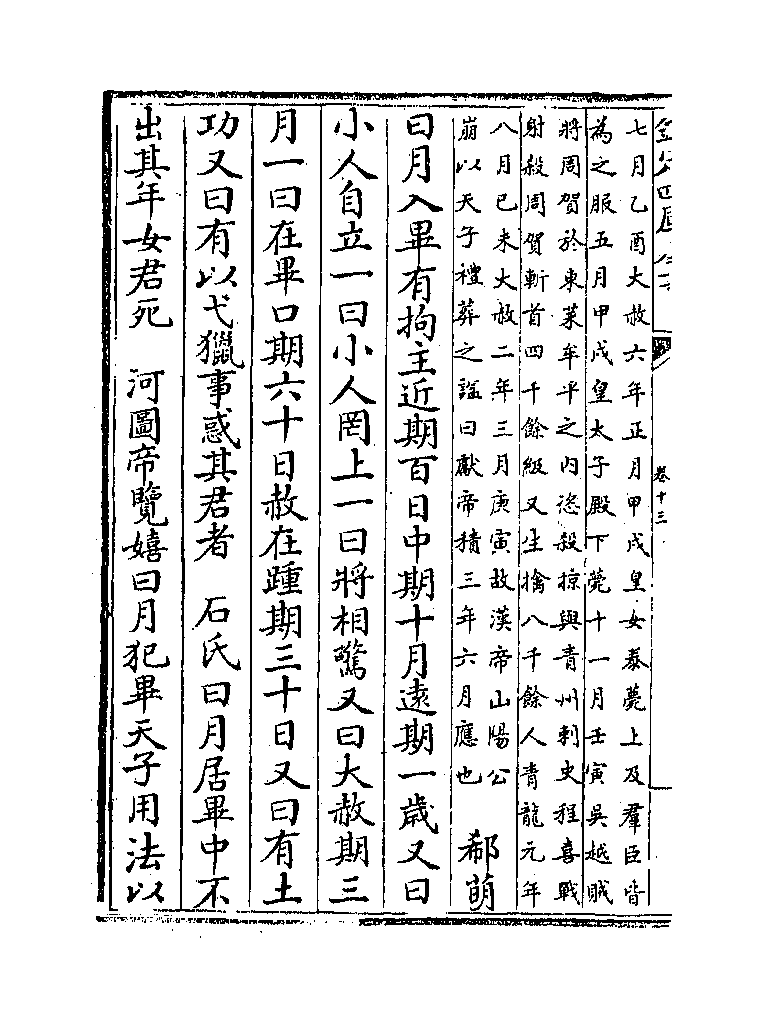 卷十三
七月乙酉大赦六年正月甲戌皇女泰薨上及羣臣皆
為之服五月甲戌皇太子殿下薨十一月壬寅吳越賊
將周賀於東萊牟平之内恣殺掠與青州刺史程喜戰
射殺周賀斬首四千餘級又生擒八千餘人青龍元年
八月已未大赦二年三月庚寅故漢帝山陽公
崩以天子禮葬之諡曰獻帝積三年六月應也
郗萌
曰月入畢有拘主近期百日中期十月遠期一歳又曰
小人自立一曰小人罔上一曰將相驚又曰大赦期三
月一曰在畢口期六十日赦在踵期三十日又曰有土
功又曰有以弋獵事惑其君者　石氏曰月居畢中不
出其年女君死　河圖帝覽嬉曰月犯畢天子用法以